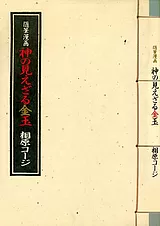 随筆漫画
神の見えざる金玉
相原コージ
随筆漫画
神の見えざる金玉
相原コージ